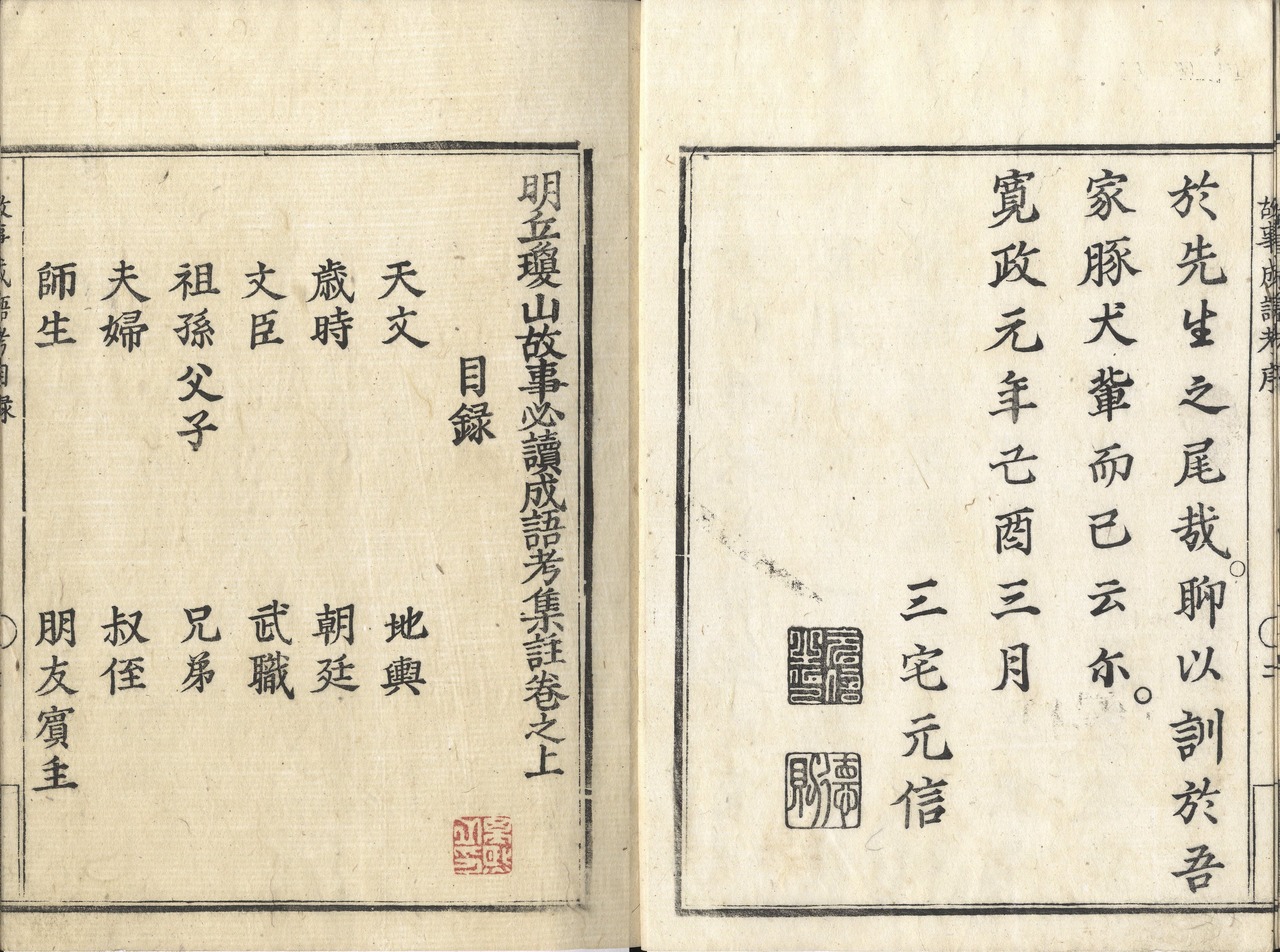 故事成語考序
二
於先生之尾哉。聊以訓於吾
家豚犬輩而已云尓。
寛政元年己酉三月
三宅元信
德則
明丘瓊山故事必讀成語考集註卷之上
目録
天文　地輿
歳時　朝廷
文臣　武職
祖孫父子　兄弟
夫婦　叔侄
師生　朋友賓主
故事成語考目録